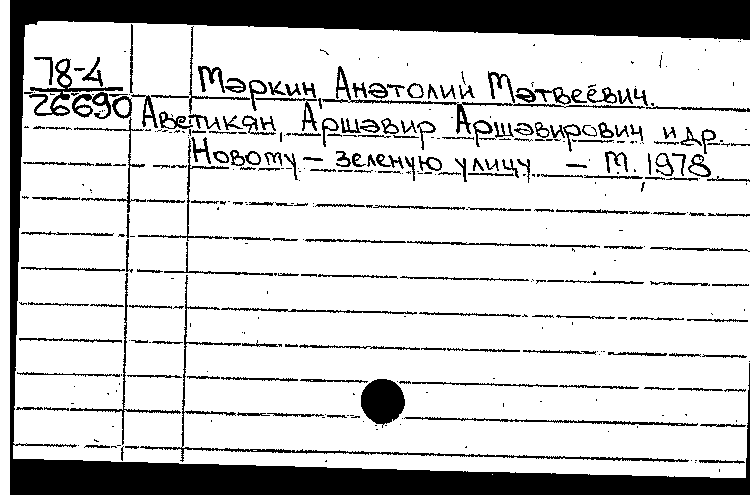 78-4
26690
Маркин, Анатолий Матвеевич.
Аветикян, Аршавир Аршавирович и др.
Новому — зеленую улицу — М. 1978.